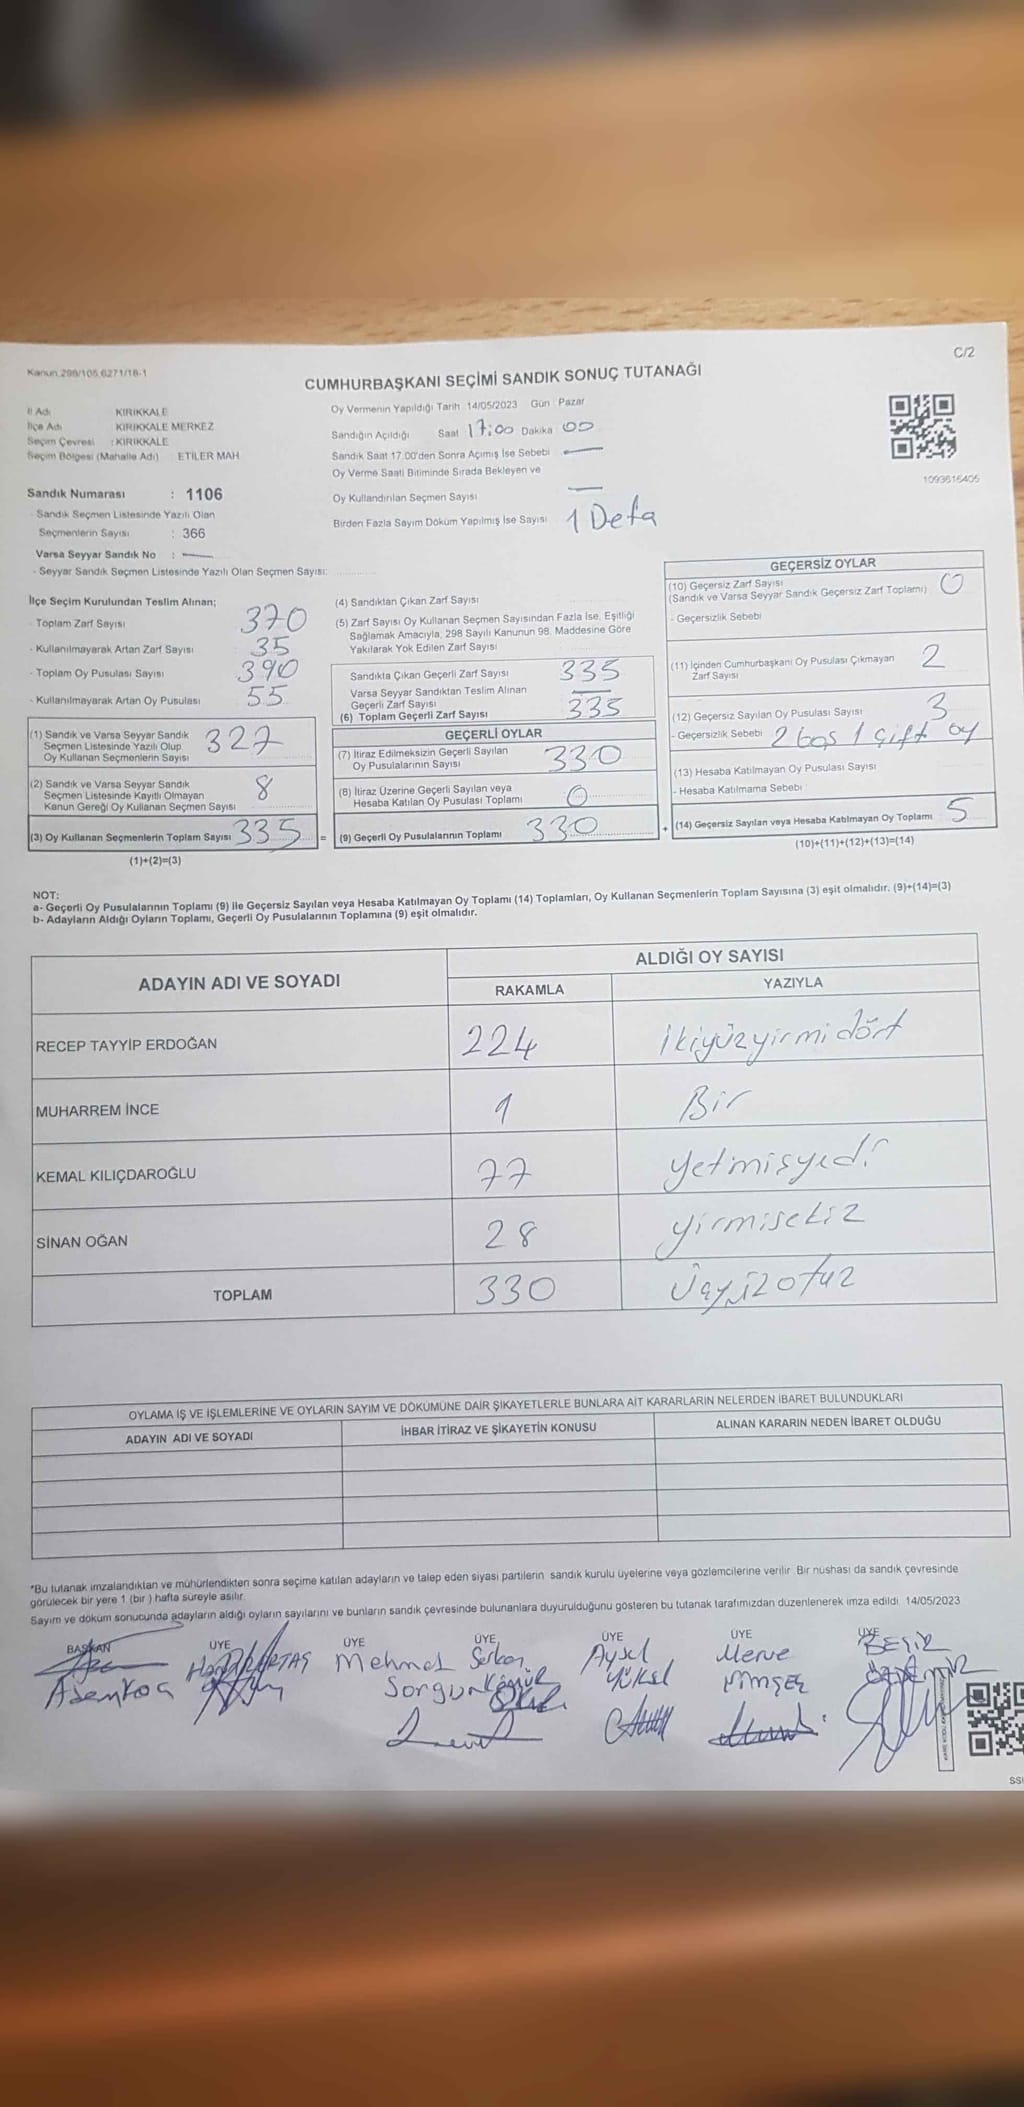 C/2
Kanun 298/105 6271/18-1
CUMHURBAŞKANI SEÇİMİ SANDIK SONUÇ TUTANAĞI
İl Adı KIRIKKALE
İlçe Adı KIRIKKALE MERKEZ
Seçim Çevresi : KIRIKKALE
Seçim Bölgesi (Mahalle Adı) ETİLER MAH
Sandık Numarası : 1106
- Sandık Seçmen Listesinde Yazılı Olan
Seçmenlerin Sayısı : 366
Varsa Seyyar Sandık No : —
- Seyyar Sandık Seçmen Listesinde Yazılı Olan Seçmen Sayısı:
Oy Vermenin Yapıldığı Tarih 14/05/2023 Gün : Pazar
Sandığın Açıldığı Saat 17:00 Dakika 00
Sandık Saat 17.00'den Sonra Açılmış İse Sebebi —
Oy Verme Saati Bitiminde Sırada Bekleyen ve
Oy Kullandırılan Seçmen Sayısı —
Birden Fazla Sayım Döküm Yapılmış İse Sayısı 1 Defa
1093616405
İlçe Seçim Kurulundan Teslim Alınan;
- Toplam Zarf Sayısı 370
- Kullanılmayarak Artan Zarf Sayısı 35
- Toplam Oy Pusulası Sayısı 390
- Kullanılmayarak Artan Oy Pusulası 55
(1) Sandık ve Varsa Seyyar Sandık
Seçmen Listesinde Yazılı Olup
Oy Kullanan Seçmenlerin Sayısı 327
(2) Sandık ve Varsa Seyyar Sandık
Seçmen Listesinde Kayıtlı Olmayan
Kanun Gereği Oy Kullanan Seçmen Sayısı 8
(3) Oy Kullanan Seçmenlerin Toplam Sayısı 335 =
(1)+(2)=(3)
(4) Sandıktan Çıkan Zarf Sayısı
(5) Zarf Sayısı Oy Kullanan Seçmen Sayısından Fazla İse, Eşitliği
Sağlamak Amacıyla, 298 Sayılı Kanunun 98. Maddesine Göre
Yakılarak Yok Edilen Zarf Sayısı
Sandıkta Çıkan Geçerli Zarf Sayısı 335
Varsa Seyyar Sandıktan Teslim Alınan
Geçerli Zarf Sayısı —
(6) Toplam Geçerli Zarf Sayısı 335
GEÇERLİ OYLAR
(7) İtiraz Edilmeksizin Geçerli Sayılan
Oy Pusulalarının Sayısı 330
(8) İtiraz Üzerine Geçerli Sayılan veya
Hesaba Katılan Oy Pusulası Toplamı 0
(9) Geçerli Oy Pusulalarının Toplamı 330 +
GEÇERSİZ OYLAR
(10) Geçersiz Zarf Sayısı 0
(Sandık ve Varsa Seyyar Sandık Geçersiz Zarf Toplamı)
- Geçersizlik Sebebi
(11) İçinden Cumhurbaşkanı Oy Pusulası Çıkmayan 2
Zarf Sayısı
(12) Geçersiz Sayılan Oy Pusulası Sayısı 3
- Geçersizlik Sebebi 2 boş 1 çift oy
(13) Hesaba Katılmayan Oy Pusulası Sayısı
- Hesaba Katılmama Sebebi
(14) Geçersiz Sayılan veya Hesaba Katılmayan Oy Toplamı 5
(10)+(11)+(12)+(13)=(14)
NOT:
a- Geçerli Oy Pusulalarının Toplamı (9) ile Geçersiz Sayılan veya Hesaba Katılmayan Oy Toplamı (14) Toplamları, Oy Kullanan Seçmenlerin Toplam Sayısına (3) eşit olmalıdır. (9)+(14)=(3)
b- Adayların Aldığı Oyların Toplamı, Geçerli Oy Pusulalarının Toplamına (9) eşit olmalıdır.
ADAYIN ADI VE SOYADI ALDIĞI OY SAYISI
RAKAMLA YAZIYLA
RECEP TAYYİP ERDOĞAN 224 ikiyüzyirmidört
MUHARREM İNCE 1 Bir
KEMAL KILIÇDAROĞLU 77 yetmişyedi
SİNAN OĞAN 28 yirmisekiz
TOPLAM 330 Üçyüzotuz
OYLAMA İŞ VE İŞLEMLERİNE VE OYLARIN SAYIM VE DÖKÜMÜNE DAİR ŞİKAYETLERLE BUNLARA AİT KARARLARIN NELERDEN İBARET BULUNDUKLARI
ADAYIN ADI VE SOYADI İHBAR İTİRAZ VE ŞİKAYETİN KONUSU ALINAN KARARIN NEDEN İBARET OLDUĞU
*Bu tutanak imzalandıktan ve mühürlendikten sonra seçime katılan adayların ve talep eden siyasi partilerin sandık kurulu üyelerine veya gözlemcilerine verilir. Bir nüshası da sandık çevresinde
görülecek bir yere 1 (bir) hafta süreyle asılır.
Sayım ve döküm sonucunda adayların aldığı oyların sayılarını ve bunların sandık çevresinde bulunanlara duyurulduğunu gösteren bu tutanak tarafımızdan düzenlenerek imza edildi. 14/05/2023
BAŞKAN ÜYE ÜYE ÜYE ÜYE ÜYE ÜYE
Mehmet Serkan Aysel Merve BEŞİR
Sorgun Yüksel ŞİMŞEK